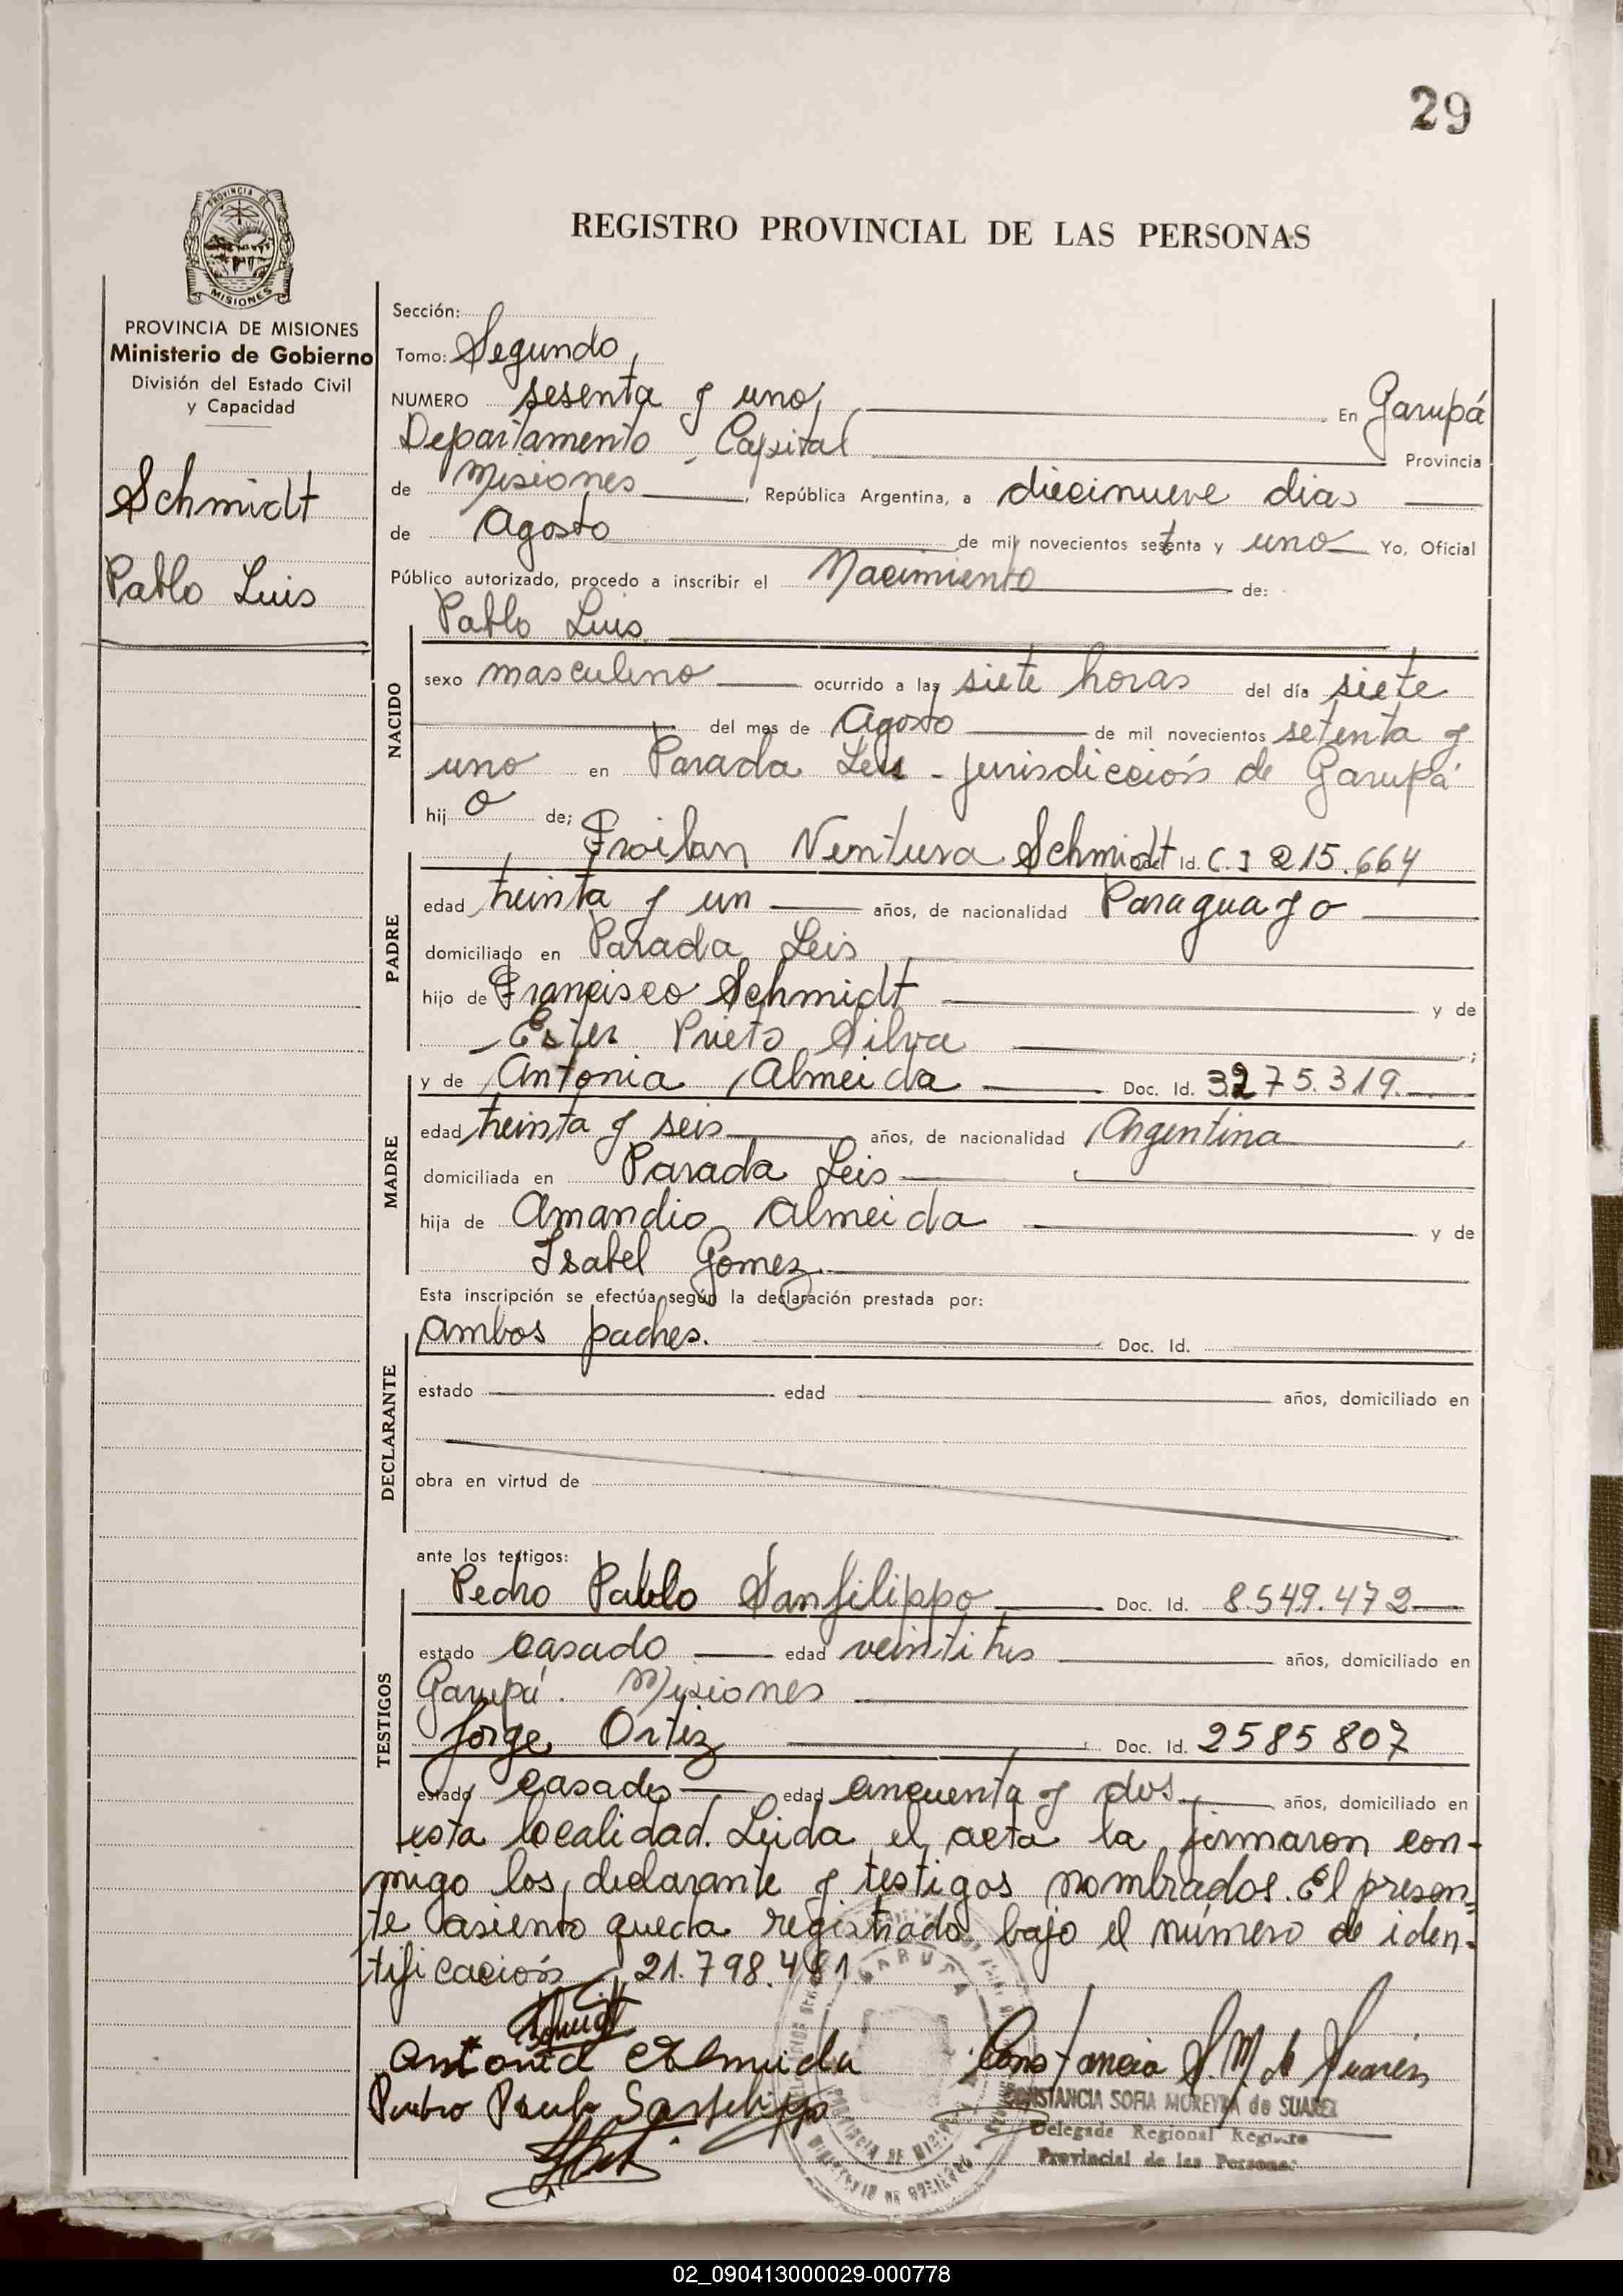 29
PROVINCIA DE
MISIONES
REGISTRO PROVINCIAL DE LAS PERSONAS
PROVINCIA DE MISIONES
Ministerio de Gobierno
División del Estado Civil
y Capacidad
Schmidt
Pablo Luis
Sección:
Tomo: Segundo
NUMERO sesenta y uno, En Garupá
Departamento Capital Provincia
de Misiones, República Argentina, a diecinueve dias
de Agosto de mil novecientos setenta y uno Yo, Oficial
Público autorizado, procedo a inscribir el Nacimiento de:
Pablo Luis
NACIDO
sexo masculino ocurrido a las siete horas del día siete
del mes de Agosto de mil novecientos setenta y
uno en Parada Leis - jurisdicción de Garupá
hij o de;
Froilan Ventura Schmidt Doc. Id. C.I 215.664
PADRE
edad treinta y un años, de nacionalidad Paraguayo
domiciliado en Parada Leis
hijo de Francisco Schmidt y de
Ester Prieto Silva ;
MADRE
y de Antonia Almeida Doc. Id. 3275.319.
edad treinta y seis años, de nacionalidad Argentina
domiciliada en Parada Leis
hija de Amandio Almeida y de
Isabel Gomez.
Esta inscripción se efectúa según la declaración prestada por:
DECLARANTE
ambos padres. Doc. Id.
estado edad años, domiciliado en
obra en virtud de
ante los testigos:
TESTIGOS
Pedro Pablo Sanfilippo Doc. Id. 8.549.472
estado casado edad veintitres años, domiciliado en
Garupá. Misiones
Jorge Ortiz Doc. Id. 2585807
estado casado edad cincuenta y dos años, domiciliado en
esta localidad. Leida el acta la firmaron con-
migo los declarante y testigos nombrados. El presen-
te asiento queda registrado bajo el número de iden-
tificación 21.798.481
GARUPA
Antonia Almeida
Constancia S. M. de Suarez
Pedro Pablo Sanfilippo
CONSTANCIA SOFIA MOREYRA de SUAREZ
Delegada Regional Registro
Provincial de las Personas
02_090413000029-000778